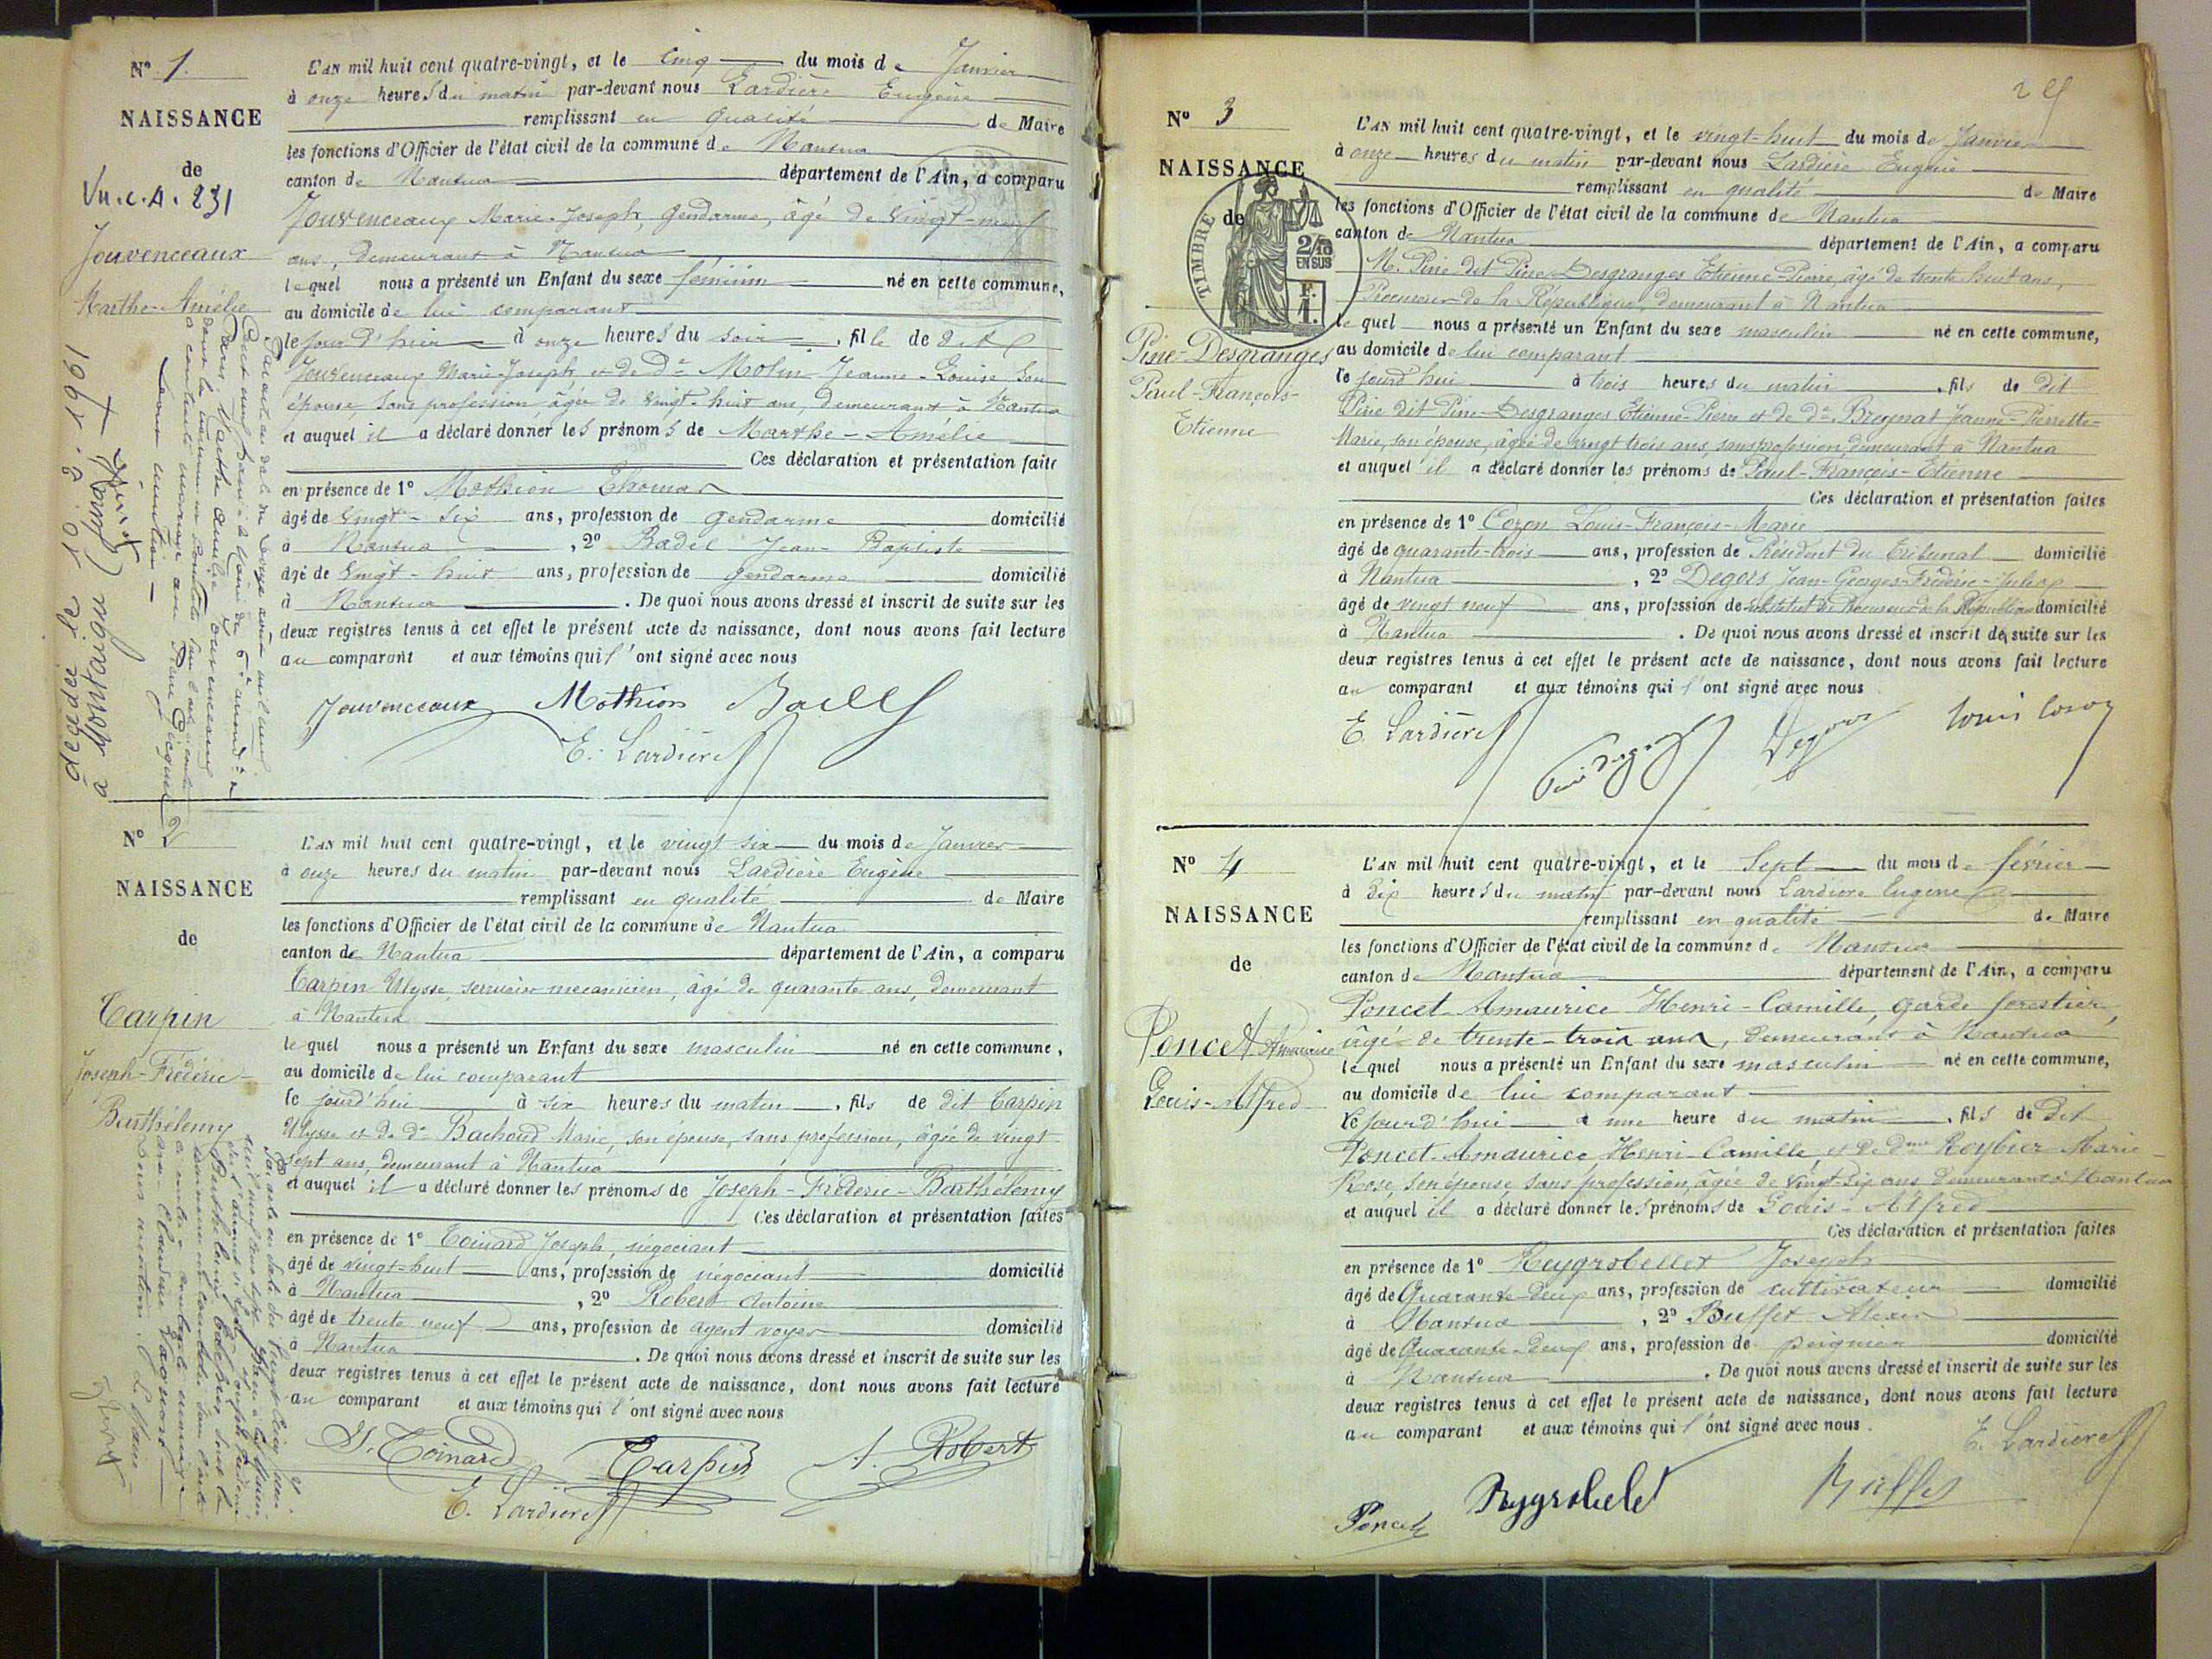 N° 1.
NAISSANCE
de
Vu. c. A. 231
Jouvenceaux
Marthe-Amélie
décédée le 10.2.1961
à Montaigu (Jura)
L'AN mil huit cent quatre-vingt, et le cinq du mois de Janvier
à onze heures du matin par-devant nous Lardière Eugène
remplissant en qualité de Maire
les fonctions d'Officier de l'état civil de la commune de Nantua
canton de Nantua département de l'Ain, a comparu
Jouvenceaux Marie-Joseph, gendarme, âgé de vingt-neuf
ans, demeurant à Nantua
lequel nous a présenté un Enfant du sexe féminin né en cette commune,
au domicile de lui comparant
le jour d'hier à onze heures du soir, fille de
Jouvenceaux Marie-Joseph et de De Molin Jeanne-Louise son
épouse sans profession âgée de vingt-huit ans, demeurant à Nantua
et auquel il a déclaré donner les prénoms de Marthe-Amélie
Ces déclaration et présentation faite
en présence de 1° Mothion Thomas
âgé de vingt-six ans, profession de gendarme domicilié
à Nantua, 2° Badel Jean-Baptiste
âgé de vingt-huit ans, profession de gendarme domicilié
à Nantua. De quoi nous avons dressé et inscrit de suite sur les
deux registres tenus à cet effet le présent acte de naissance, dont nous avons fait lecture
au comparant et aux témoins qui l'ont signé avec nous
Jouvenceaux Mothion Badel
E. Lardière
N° 2
NAISSANCE
de
Carpin
Joseph-Frédéric-
Barthélemy
L'AN mil huit cent quatre-vingt, et le vingt six du mois de Janvier
à onze heures du matin par-devant nous Lardière Eugène
remplissant en qualité de Maire
les fonctions d'Officier de l'état civil de la commune de Nantua
canton de Nantua département de l'Ain, a comparu
Carpin Ulysse, serrurier mécanicien, âgé de quarante ans, demeurant
à Nantua
lequel nous a présenté un Enfant du sexe masculin né en cette commune,
au domicile de lui comparant
le jourd'hui à six heures du matin, fils de dit Carpin
Ulysse et de De Bachoud Marie, son épouse, sans profession, âgée de vingt
sept ans, demeurant à Nantua
et auquel il a déclaré donner les prénoms de Joseph-Frédéric-Barthélemy
Ces déclaration et présentation faites
en présence de 1° Coinard Joseph, négociant
âgé de vingt-huit ans, profession de négociant domicilié
à Nantua, 2° Robert Antoine
âgé de trente neuf ans, profession de agent voyer domicilié
à Nantua. De quoi nous avons dressé et inscrit de suite sur les
deux registres tenus à cet effet le présent acte de naissance, dont nous avons fait lecture
au comparant et aux témoins qui l'ont signé avec nous
J. Coinard Carpin A. Robert
E. Lardière
N° 3
NAISSANCE
de
TIMBRE
2/10 EN SUS
F. 1.
Pine-Desgranges
Paul-François-
Etienne
L'AN mil huit cent quatre-vingt, et le vingt-huit du mois de Janvier
à onze heures du matin par-devant nous Lardière Eugène
remplissant en qualité de Maire
les fonctions d'Officier de l'état civil de la commune de Nantua
canton de Nantua département de l'Ain, a comparu
M. Pine dit Pine-Desgranges Etienne-Pierre, âgé de trente huit ans,
Procureur de la République, demeurant à Nantua
lequel nous a présenté un Enfant du sexe masculin né en cette commune,
au domicile de lui comparant
le jourd'hui à trois heures du matin, fils de dit
Pine dit Pine-Desgranges Etienne-Pierre et de De Jeanne-Pierrette-
Marie, son épouse, âgée de vingt trois ans, sans profession, demeurant à Nantua
et auquel il a déclaré donner les prénoms de Paul-François-Etienne
Ces déclaration et présentation faites
en présence de 1° Cozon Louis-François-Marie
âgé de quarante-trois ans, profession de Président du Tribunal domicilié
à Nantua, 2° Degors Jean-Georges-Frédéric-
âgé de vingt neuf ans, profession de substitut du Procureur de la République domicilié
à Nantua. De quoi nous avons dressé et inscrit de suite sur les
deux registres tenus à cet effet le présent acte de naissance, dont nous avons fait lecture
au comparant et aux témoins qui l'ont signé avec nous
E. Lardière Degors Louis Cozon
N° 4
NAISSANCE
de
Poncet Amaurice
Louis-Alfred
L'AN mil huit cent quatre-vingt, et le sept du mois de février
à dix heures du matin par-devant nous Lardière Eugène
remplissant en qualité de Maire
les fonctions d'Officier de l'état civil de la commune de Nantua
canton de Nantua département de l'Ain, a comparu
Poncet-Amaurice Henri-Camille, garde forestier,
âgé de trente-trois ans, demeurant à Nantua
lequel nous a présenté un Enfant du sexe masculin né en cette commune,
au domicile de lui comparant
le jour d'hui à une heure du matin, fils de dit
Poncet-Amaurice Henri-Camille et de Dme Reybier Marie-
Rose, son épouse sans profession, âgée de vingt-six ans demeurant à Nantua
et auquel il a déclaré donner les prénoms de Louis-Alfred
Ces déclaration et présentation faites
en présence de 1° Reygrobellet Joseph
âgé de Quarante-deux ans, profession de cultivateur domicilié
à Nantua, 2° Buffet Alexis
âgé de Quarante-deux ans, profession de peignier domicilié
à Nantua. De quoi nous avons dressé et inscrit de suite sur les
deux registres tenus à cet effet le présent acte de naissance, dont nous avons fait lecture
au comparant et aux témoins qui l'ont signé avec nous.
E. Lardière
Poncet Reygrobelet Buffet